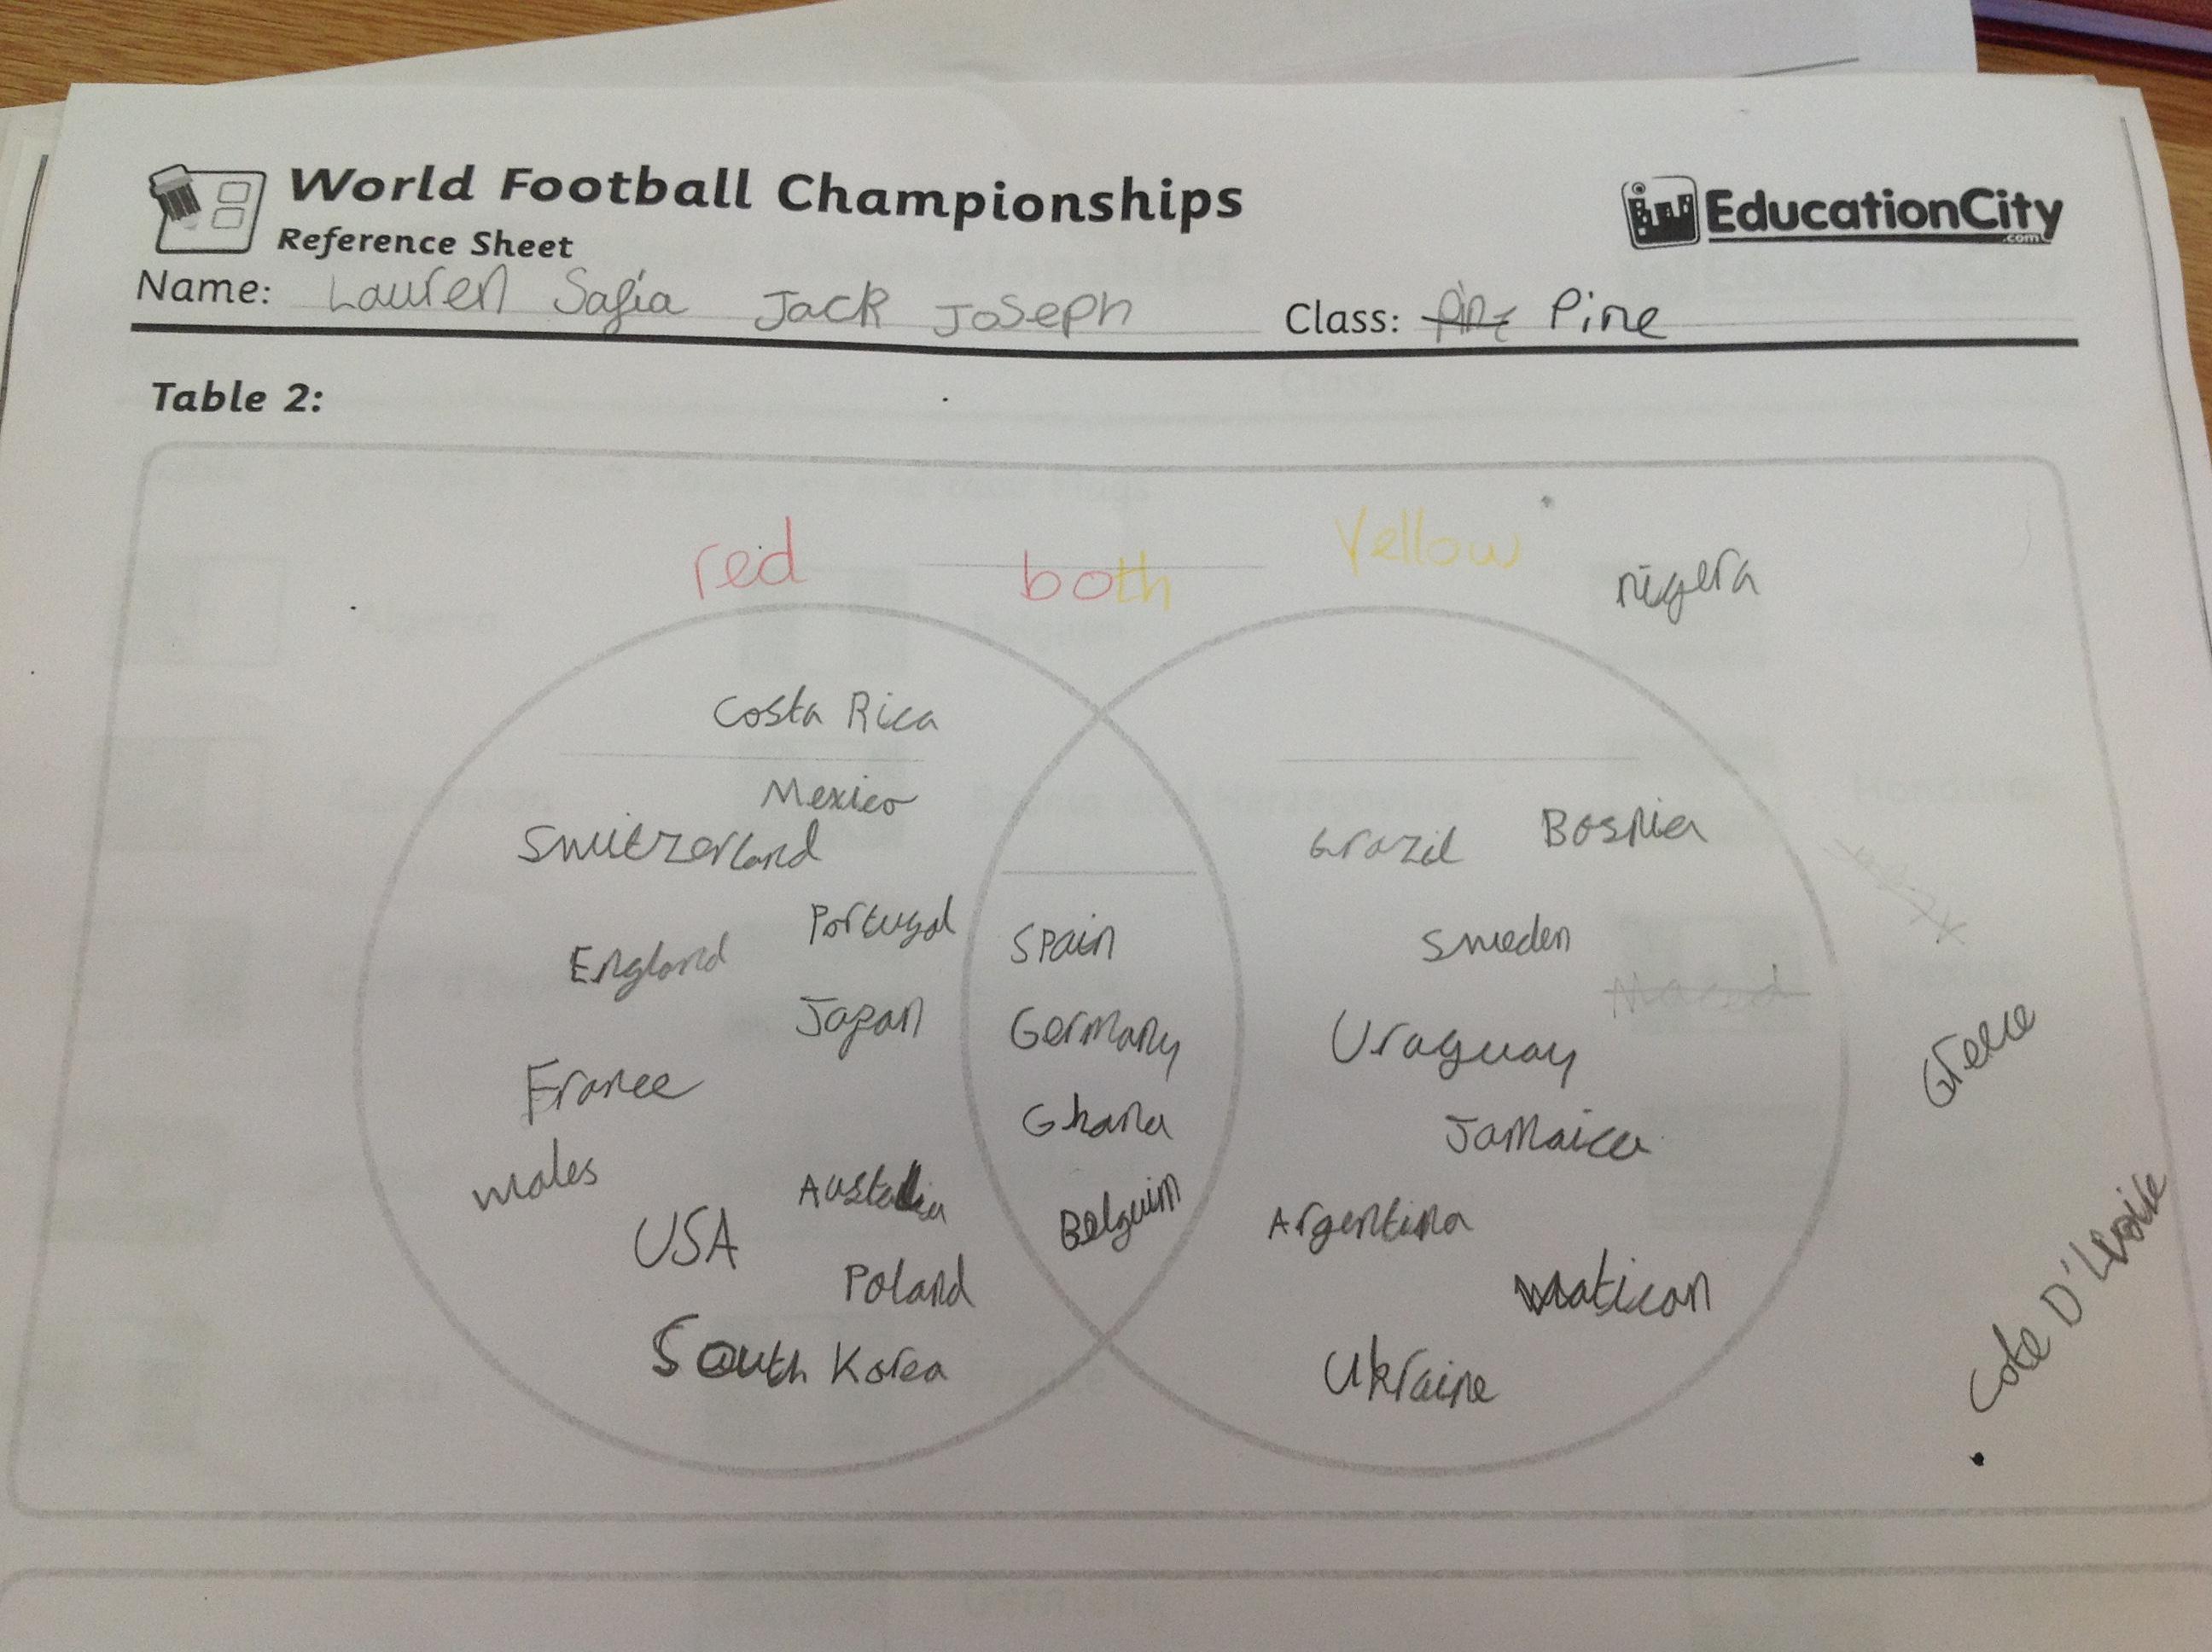 World Football Championships
Reference Sheet
EducationCity
.com
Name: Lauren Safia Jack Joseph
Class: Pine Pine
Table 2:
red both Yellow
nigera
Costa Rica
Mexico
Switzerland
Brazil Bosnia
Portugal
England
Spain
Sweden
Japan
Germany
Uraguay
Greece
France
Ghana
Jamaica
wales
Australia
Belguim
Argentina
USA
Poland
Vatican
South Korea
Ukraine
Cote D'Livoire